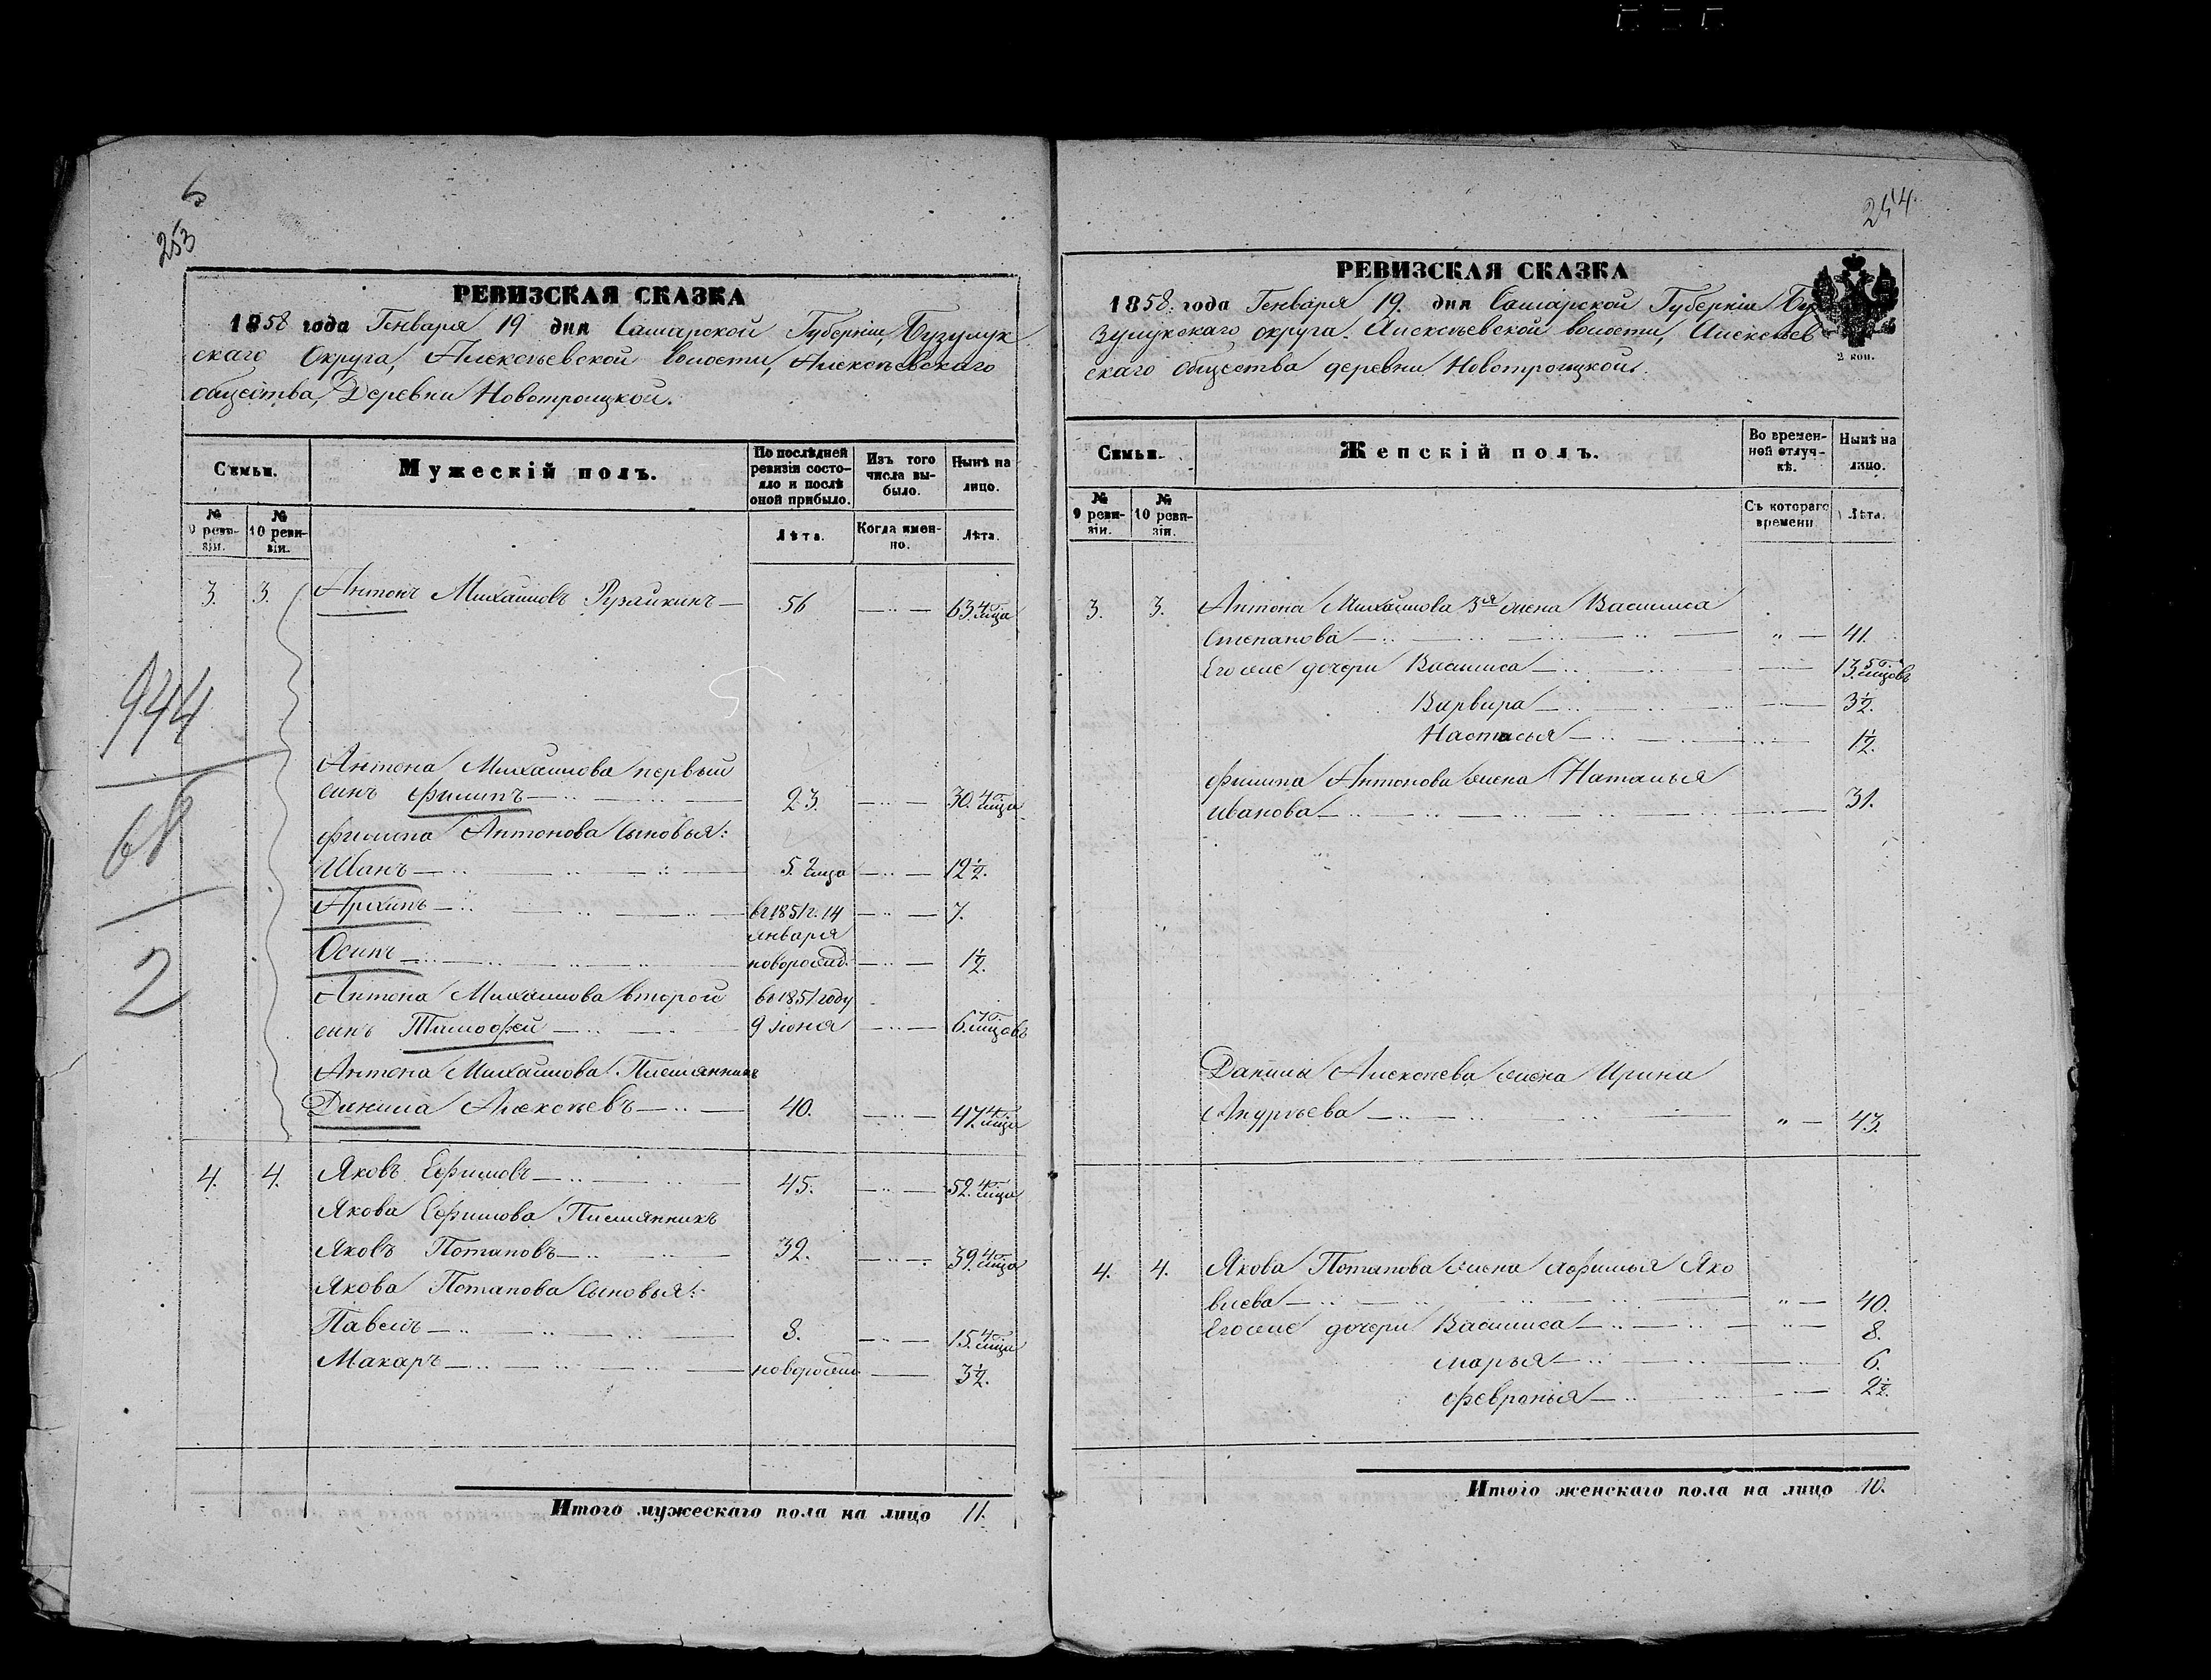 6
253
РЕВИЗСКАЯ СКАЗКА
1858 года Генваря 19 дня Самарской Губернiи, Бузулук
скаго Округа, Алексѣевской волости, Алексѣевскаго
общества, Деревни Новотроицкой.
Семьи.
Мужескiй полъ.
По послѣдней ревизiи состо-яло и послѣ оной прибыло.
Изъ того числа вы-было.
Нынѣ на лицо.
№ 9 реви-зiи.
№ 10 реви-зiи.
Лѣта.
Когда имен-но.
Лѣта.
3. 3. Антонъ Михайловъ Рузайкинъ 56 63. 4 лица
Антона Михайлова первый
сынъ Филипъ 23. 30. 4 лица
Филипа Антонова сыновья:
Иванъ 5. 2 лица 12½.
Архипъ въ 1851 г. 14 7.
января
Осипъ новорожд. 1½.
Антона Михайлова второй въ 1851 году
сынъ Тимофей 9 июня 6. лицовъ
Антона Михайлова Племянникъ
Данила Алексѣевъ 40. 47. 4 лица
4. 4. Яковъ Ефимовъ 45. 52. 4 лица
Якова Ефимова Племянникъ
Яковъ Потаповъ 32. 39. 4 лица
Якова Потапова сыновья:
Павелъ 8. 15. 4 лица
Макаръ новорожд 3½.
Итого мужескаго пола на лицо 11.
944
68
2
254.
РЕВИЗСКАЯ СКАЗКА
1858. года Генваря 19. дня Самарской Губернiи Бу
зулукскаго округа. Алексѣевской волости, Алексѣев
скаго общества деревни Новотроицкой.
2 коп.
Семьи.
Женскiй полъ.
Во времен-ной отлуч-кѣ.
Нынѣ на лицо.
№ 9 реви-зiи.
№ 10 реви-зiи.
Съ котораго времени
Лѣта.
3. 3. Антона Михайлова 3я жена Василиса
Степанова " 41.
Его же дочери Василиса 13. 5 лицовъ
Варвара 3½.
Настасья 1½.
Филипа Антонова жена Наталья
Иванова 31.
Данилы Алексѣева жена Ирина
Андрѣева " 43.
4. 4. Якова Потапова жена Афимья Яко
влева " 40.
Его же дочери Василиса 8.
Марья 6.
Февронья 2½.
Итого женскаго пола на лицо 10.